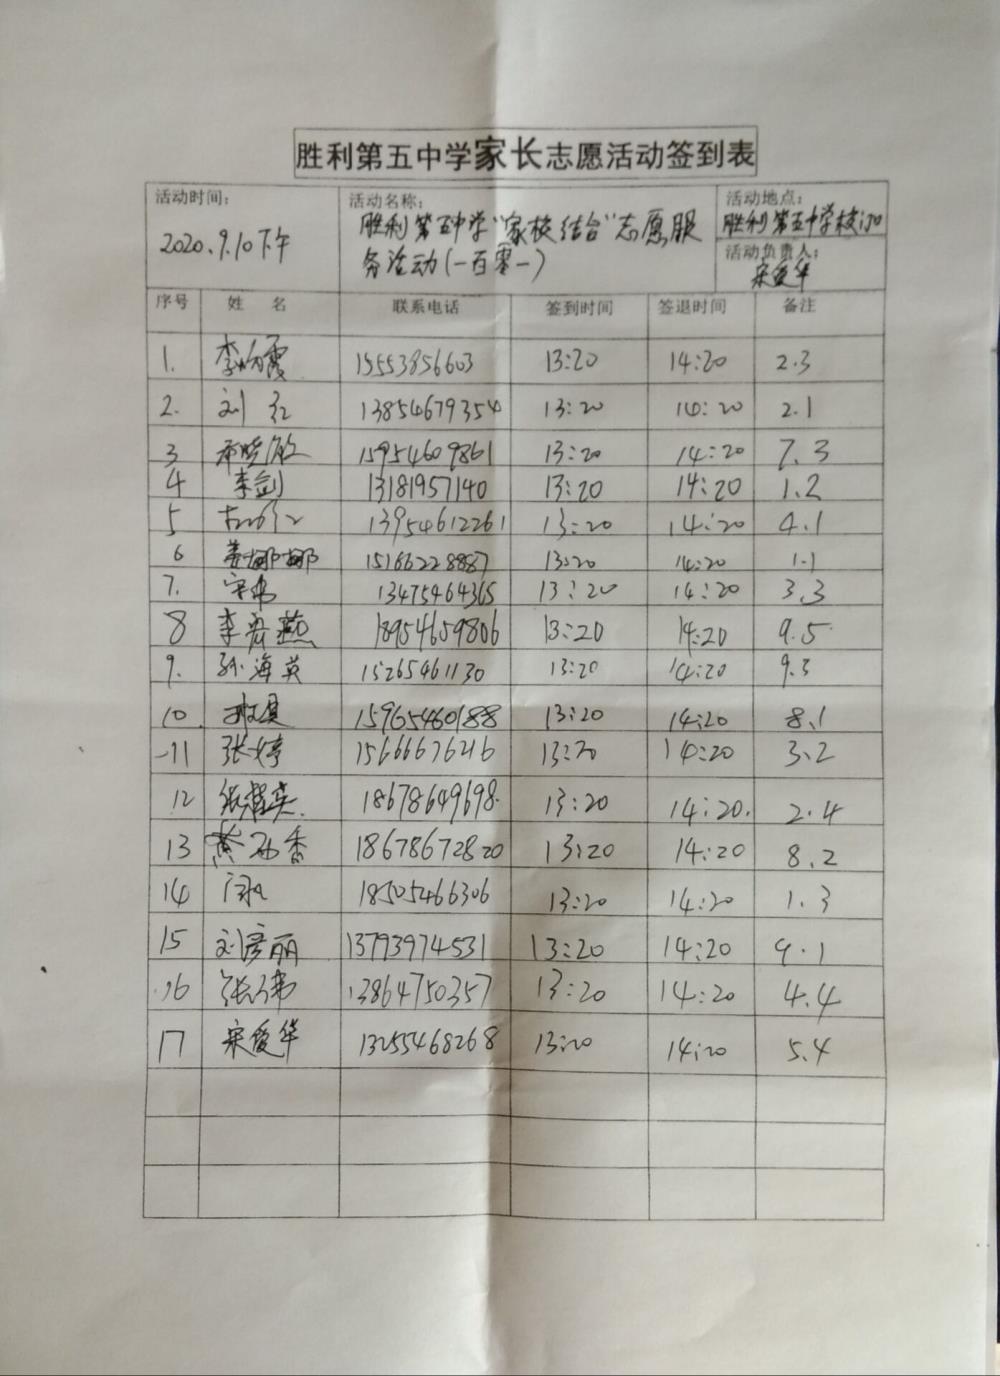 胜利第五中学家长志愿活动签到表
活动时间: 2020.9.10下午
活动名称: 胜利第五中学"家校结合"志愿服
务活动(一百零一)
活动地点: 胜利第五中学校门口
活动负责人: 宋爱华
序号 姓 名 联系电话 签到时间 签退时间 备注
1. 15553856603 13:20 14:20 2.3
2. 刘红 13854679354 13:20 14:20 2.1
3 15954609861 13:20 14:20 7.3
4 李剑 13181957140 13:20 14:20 1.2
5 13954612261 13:20 14:20 4.1
6 姜娜娜 15166228887 13:20 14:20 1.1
7. 宋伟 13475464365 13:20 14:20 3.3
8 李彦燕 18954659806 13:20 14:20 9.5
9. 孙海英 15265461130 13:20 14:20 9.3
10. 15965460188 13:20 14:20 8.1
11 张婷 15666676216 13:20 14:20 3.2
12 18678649698. 13:20 14:20. 2.4
13 18678672820 13:20 14:20 8.2
14 18505466306 13:20 14:20 1.3
15 刘彦丽 13793974531 13:20 14:20 9.1
16 张伟 13864750357 13:20 14:20 4.4
17 宋爱华 13255468268 13:20 14:20 5.4